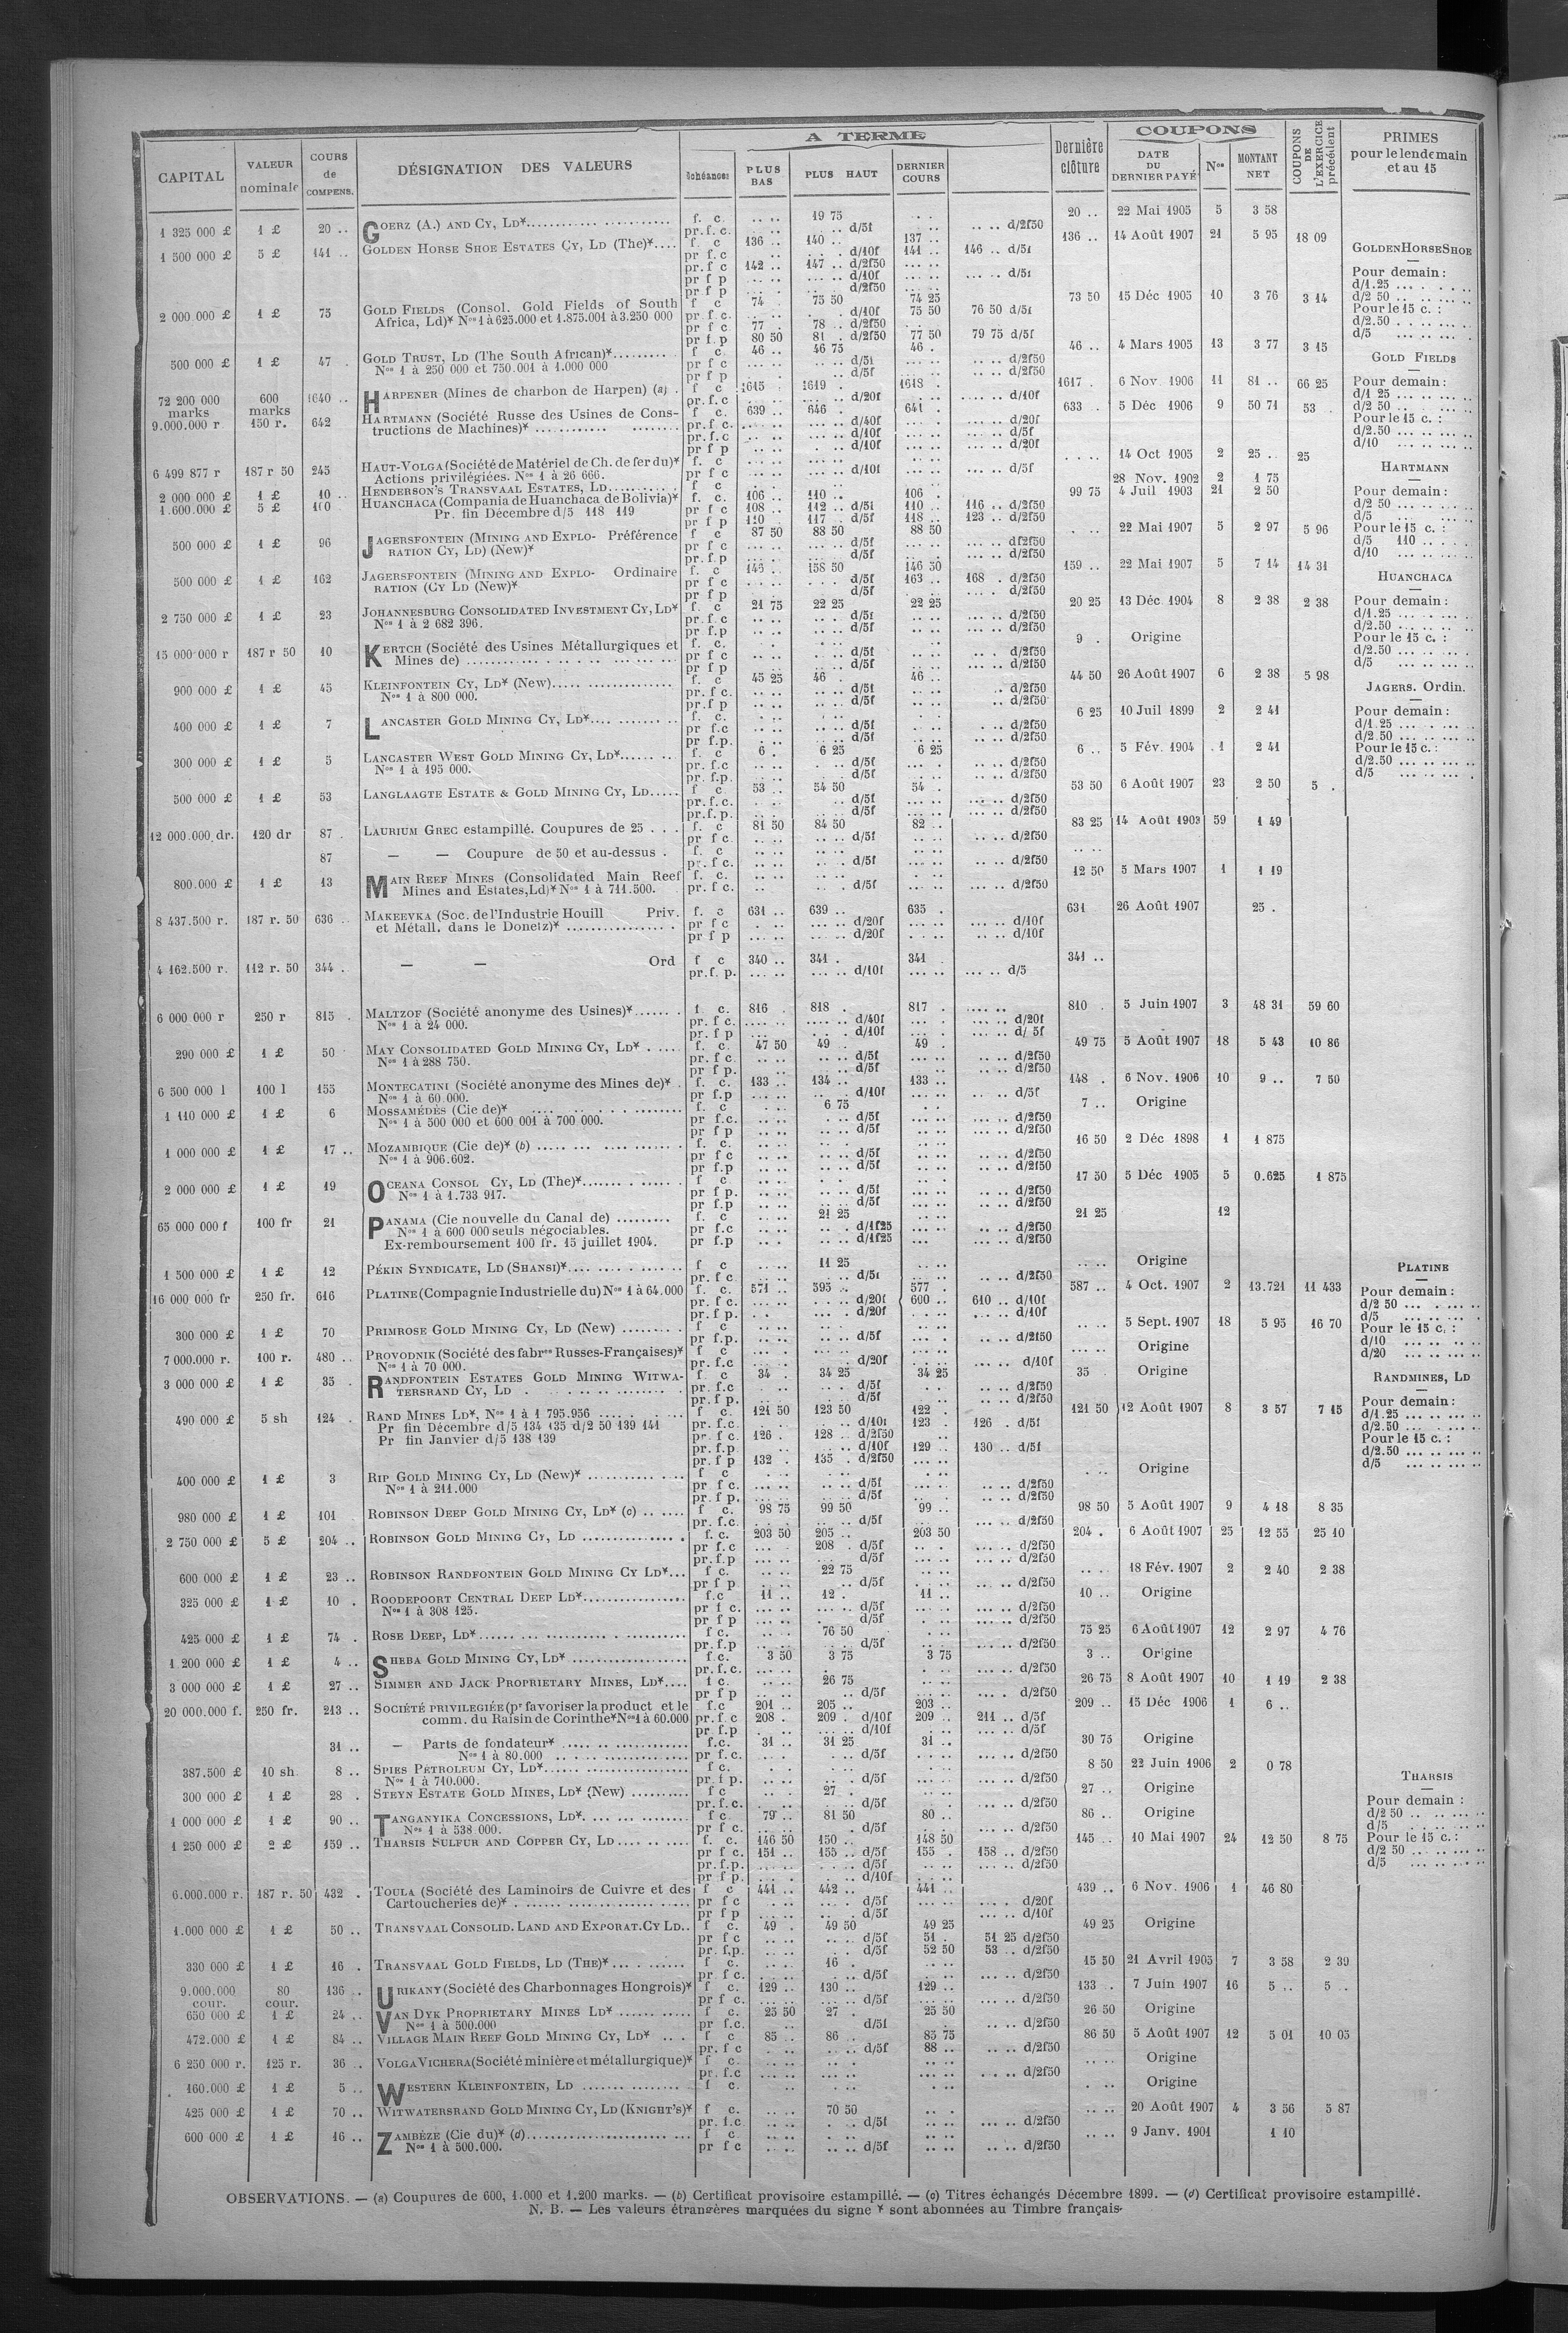 A TERME
COUPONS
CAPITAL
VALEUR nominale
COURS de COMPENS.
DÉSIGNATION DES VALEURS
échéances
PLUS BAS
PLUS HAUT
DERNIER COURS
Dernière clôture
DATE DU DERNIER PAYÉ
Nos
MONTANT NET
COUPONS DE L'EXERCICE précédent
PRIMES pour le lendemain et au 15
1 325 000 £ 1 £ 20 .. GOERZ (A.) AND CY, LD* f. c. 19 75 20 .. 22 Mai 1905 5 3 58
pr. f. c. d/5f d/2f50
1 500 000 £ 5 £ 141 .. GOLDEN HORSE SHOE ESTATES CY, LD (The)* f c 136 .. 140 .. 137 .. 136 .. 14 Août 1907 21 5 95 18 09
pr f. c d/10f 141 .. 146 .. d/5f
pr. f c 142 .. 147 .. d/2f50
pr f p d/10f d/5f
pr f p d/2f50
2 000 000 £ 1 £ 75 GOLD FIELDS (Consol. Gold Fields of South f c 74 . 75 50 74 25 73 50 15 Déc 1905 10 3 76 3 14
Africa, Ld)* Nos 1 à 625.000 et 1.875.001 à 3.250 000 pr f. c. d/10f 75 50 76 50 d/5f
pr f c 77 . 78 .. d/2f50
pr f. p 80 50 81 . d/2f50 77 50 79 75 d/5f
500 000 £ 1 £ 47 . GOLD TRUST, LD (The South African)* f c. 46 .. 46 75 46 . 46 .. 4 Mars 1905 13 3 77 3 15
Nos 1 à 250 000 et 750.001 à 1.000 000 pr f c d/5f d/2f50
pr f p d/5f d/2f50
72 200 000 marks 600 marks 1640 .. HARPENER (Mines de charbon de Harpen) (a) f c 1615 . 1619 . 1618 . 1617 . 6 Nov. 1906 11 81 .. 66 25
pr. f. c d/20f d/10f
9.000.000 r 150 r. 642 HARTMANN (Société Russe des Usines de Cons- f c. 639 .. 646 . 641 . 633 .. 5 Déc 1906 9 50 71 53 .
tructions de Machines)* pr. f c. d/40f d/20f
pr. f. c d/10f d/5f
pr f p d/10f d/20f
6 499 877 r 187 r 50 245 HAUT-VOLGA (Société de Matériel de Ch. de fer du)* f. c 14 Oct 1905 2 25 .. 25
Actions privilégiées. Nos 1 à 26 666. pr f c d/10f d/5f
2 000 000 £ 1 £ 10 .. HENDERSON'S TRANSVAAL ESTATES, LD f c 28 Nov. 1902 2 1 75
1.600.000 £ 5 £ 100 HUANCHACA (Compania de Huanchaca de Bolivia)* f. c. 106 .. 110 .. 106 . 99 75 4 Juil 1903 21 2 50
Pr. fin Décembre d/5 118 119 pr f c 108 .. 112 .. d/5f 110 .. 116 .. d/2f50
pr f p 110 .. 117 . d/5f 118 .. 123 .. d/2f50
500 000 £ 1 £ 96 JAGERSFONTEIN (MINING AND EXPLO- Préférence f c 87 50 88 50 88 50 22 Mai 1907 5 2 97 5 96
RATION CY, LD) (New)* pr f c d/5f d/2f50
pr. f. p d/5f d/2f50
500 000 £ 1 £ 162 JAGERSFONTEIN (MINING AND EXPLO- Ordinaire f. c 146 .. 158 50 146 50 159 .. 22 Mai 1907 5 7 14 14 31
RATION (CY LD (New)* pr f c d/5f 163 .. 168 . d/2f50
pr f p d/5f d/2f50
2 750 000 £ 1 £ 23 JOHANNESBURG CONSOLIDATED INVESTMENT CY, LD* f. c 21 75 22 25 22 25 20 25 13 Déc. 1904 8 2 38 2 38
Nos 1 à 2 682 396. pr. f. c d/5f d/2f50
pr. f.p d/5f d/2f50
15 000 000 r 187 r 50 10 KERTCH (Société des Usines Métallurgiques et f. c. 9 . Origine
Mines de) pr f c d/5f d/2f50
pr f p d/5f d/2f50
900 000 £ 1 £ 45 KLEINFONTEIN CY, LD* (New) f. c 45 25 46 . 46 .. 44 50 26 Août 1907 6 2 38 5 98
Nos 1 à 800 000. pr. f c. d/5f d/2f50
pr. f p d/5f d/2f50
400 000 £ 1 £ 7 LANCASTER GOLD MINING CY, LD* f. c. 6 25 10 Juil 1899 2 2 41
pr f.c d/5f d/2f50
pr f.p. d/5f d/2f50
300 000 £ 1 £ 5 LANCASTER WEST GOLD MINING CY, LD* f. c 6 . 6 25 6 25 6 .. 5 Fév. 1904 1 2 41
Nos 1 à 195 000. pr. f.c d/5f d/2f50
pr. f.p. d/5f d/2f50
500 000 £ 1 £ 53 LANGLAAGTE ESTATE & GOLD MINING CY, LD f c. 53 .. 54 50 54 . 53 50 6 Août 1907 23 2 50 5 .
pr. f. c. d/5f d/2f50
pr. f. p. d/5f d/2f50
12 000.000 dr. 120 dr 87 . LAURIUM GREC estampillé. Coupures de 25 f. c 81 50 84 50 82 .. 83 25 14 Août 1903 59 1 49
pr f c d/5f d/2f50
87 — — Coupure de 50 et au-dessus . f. c
pr. f c. d/5f d/2f50
800.000 £ 1 £ 13 MAIN REEF MINES (Consolidated Main Reef f. c. 12 50 5 Mars 1907 1 1 19
Mines and Estates, Ld)* Nos 1 à 711.500. pr. f c. d/5f d/2f50
8 437.500 r. 187 r. 50 636 .. MAKEEVKA (Soc. de l'Industrie Houill Priv. f. c 631 .. 639 .. 635 . 631 26 Août 1907 25 .
et Métall. dans le Donetz)* pr f c d/20f d/10f
pr f p d/20f d/10f
4 162.500 r. 112 r. 50 344 . — — Ord f c 340 .. 341 . 341 341 ..
pr. f. p. d/10f d/5
6 000 000 r 250 r 815 . MALTZOF (Société anonyme des Usines)* f. c. 816 . 818 . 817 . 810 . 5 Juin 1907 3 48 31 59 60
Nos 1 à 24 000. pr. f c. d/40f d/20f
pr. f p d/10f d/ 5f
290 000 £ 1 £ 50 MAY CONSOLIDATED GOLD MINING CY, LD* f. c. 47 50 49 . 49 . 49 75 5 Août 1907 18 5 43 10 86
Nos 1 à 288 750. pr. f c. d/5f d/2f50
pr f p. d/5f d/2f50
6 500 000 l 100 l 155 MONTECATINI (Société anonyme des Mines de)* f. c. 133 .. 134 .. 133 .. 148 . 6 Nov. 1906 10 9 .. 7 50
Nos 1 à 60 000. pr. f.p d/10f d/5f
1 110 000 £ 1 £ 6 MOSSAMÉDÈS (Cie de)* f. c 6 75 7 .. Origine
Nos 1 à 500 000 et 600 001 à 700 000. pr f.c. d/5f d/2f50
pr f p d/5f d/2f50
1 000 000 £ 1 £ 17 .. MOZAMBIQUE (Cie de)* (b) f. c. 16 50 2 Déc 1898 1 1 875
Nos 1 à 906.602. pr f c d/5f d/2f50
pr. f.p d/5f d/2f50
2 000 000 £ 1 £ 19 OCEANA CONSOL CY, LD (The)* f c 17 50 5 Déc 1905 5 0.625 1 875
Nos 1 à 1.733 917. pr f p. d/5f d/2f50
pr f.p d/5f d/2f50
65 000 000 f 100 fr 21 PANAMA (Cie nouvelle du Canal de) f. c 21 25 21 25 12
Nos 1 à 600 000 seuls négociables. pr f.c d/1f25 d/2f50
Ex-remboursement 100 fr. 15 juillet 1904. pr f.p d/1f25 d/2f50
1 500 000 £ 1 £ 12 PÉKIN SYNDICATE, LD (SHANSI)* f c 11 25 Origine
pr. f c d/5f d/2f50
16 000 000 fr 250 fr. 616 PLATINE (Compagnie Industrielle du) Nos 1 à 64.000 f. c. 571 .. 595 .. 577 . 587 .. 4 Oct. 1907 2 13.721 11 433
pr. f c. d/20f 600 .. 610 .. d/10f
pr. f p. d/20f d/10f
300 000 £ 1 £ 70 PRIMROSE GOLD MINING CY, LD (New) f c 5 Sept. 1907 18 5 95 16 70
pr f.p. d/5f d/2f50
7 000.000 r. 100 r. 480 .. PROVODNIK (Société des fabres Russes-Françaises)* f c Origine
Nos 1 à 70 000. pr. f.c d/20f d/10f
3 000 000 £ 1 £ 35 . RANDFONTEIN ESTATES GOLD MINING WITWA- f c 34 . 34 25 34 25 35 Origine
TERSRAND CY, LD pr. f.c d/5f d/2f50
pr. f p. d/5f d/2f50
490 000 £ 5 sh 124 . RAND MINES LD*, Nos 1 à 1 795.956 f c. 121 50 123 50 122 . 121 50 12 Août 1907 8 3 57 7 15
Pr fin Décembre d/5 134 135 d/2 50 139 141 pr. f.c. d/10f 123 . 126 . d/5f
Pr fin Janvier d/5 138 139 pr. f c. 126 . 128 .. d/2f50
pr. f.p. d/10f 129 .. 130 .. d/5f
pr. f p 132 . 135 . d/2f50
400 000 £ 1 £ 3 RIP GOLD MINING CY, LD (New)* f c Origine
Nos 1 à 211.000 pr f c. d/5f d/2f50
pr. f p. d/5f d/2f50
980 000 £ 1 £ 101 ROBINSON DEEP GOLD MINING CY, LD* (c) f c. 98 75 99 50 99 .. 98 50 5 Août 1907 9 4 18 8 35
pr. f.c. d/5f d/2f50
2 750 000 £ 5 £ 204 .. ROBINSON GOLD MINING CY, LD f. c. 203 50 205 .. 203 50 204 . 6 Août 1907 25 12 55 25 10
pr f c 208 . d/5f d/2f50
pr. f.p d/5f d/2f50
600 000 £ 1 £ 23 .. ROBINSON RANDFONTEIN GOLD MINING CY LD* f c. 22 75 18 Fév. 1907 2 2 40 2 38
pr f p d/5f d/2f50
325 000 £ 1 £ 10 . ROODEPOORT CENTRAL DEEP LD* f.c 11 .. 12 . 11 .. 10 .. Origine
Nos 1 à 308 125. pr f c. d/5f d/2f50
pr f p d/5f d/2f50
425 000 £ 1 £ 74 . ROSE DEEP, LD* f c. 76 50 75 25 6 Août 1907 12 2 97 4 76
pr. f.p d/5f d/2f50
1 200 000 £ 1 £ 4 .. SHEBA GOLD MINING CY, LD* f.c. 3 50 3 75 3 75 3 .. Origine
pr. f. c. d/2f50
3 000 000 £ 1 £ 27 .. SIMMER AND JACK PROPRIETARY MINES, LD* f c. 26 75 26 75 8 Août 1907 10 1 19 2 38
pr f p d/5f d/2f50
20 000.000 f. 250 fr. 213 .. SOCIÉTÉ PRIVILEGIÉE (pr favoriser la product et le f.c 201 .. 205 .. 203 .. 209 .. 15 Déc 1906 1 6 ..
comm. du Raisin de Corinthe* Nos 1 à 60.000 pr. f. c 208 . 209 . d/10f 209 .. 211 .. d/5f
pr. f.p d/10f d/5f
31 .. — Parts de fondateur* f.c. 31 .. 31 25 31 .. 30 75 Origine
Nos 1 à 80.000 pr f. c. d/5f d/2f50
387.500 £ 10 sh 8 .. SPIES PETROLEUM CY, LD* f c. 8 50 22 Juin 1906 2 0 78
Nos 1 à 710.000. pr. f p. d/5f d/2f50
300 000 £ 1 £ 28 . STEYN ESTATE GOLD MINES, LD* (New) f c 27 . 27 .. Origine
pr. f. c. d/5f d/2f50
1 000 000 £ 1 £ 90 .. TANGANYIKA CONCESSIONS, LD* f c 79 .. 81 50 80 .. 86 .. Origine
Nos 1 à 538 000. pr f c. d/5f d/2f50
1 250 000 £ 2 £ 159 .. THARSIS SULFUR AND COPPER CY, LD f. c. 146 50 150 .. 148 50 145 .. 10 Mai 1907 24 12 50 8 75
pr f c. 151 .. 155 .. d/5f 155 . 158 .. d/2f50
pr. f.p. d/5f d/2f50
pr f p. d/10f
6.000.000 r. 187 r. 50 432 . TOULA (Société des Laminoirs de Cuivre et des f c 441 .. 442 .. 441 .. 439 .. 6 Nov. 1906 1 46 80
Cartoucheries de)* pr f c d/5f d/20f
pr f p d/5f d/10f
1.000 000 £ 1 £ 50 .. TRANSVAAL CONSOLID. LAND AND EXPORAT. CY LD. f c. 49 . 49 50 49 25 49 25 Origine
pr f c d/5f 51 . 51 25 d/2f50
pr. f.p. d/5f 52 50 53 .. d/2f50
330 000 £ 1 £ 16 . TRANSVAAL GOLD FIELDS, LD (THE)* f c. 16 . 15 50 21 Avril 1905 7 3 58 2 39
pr. f c. d/5f d/2f50
9.000.000 cour. 80 cour. 136 .. URIKANY (Société des Charbonnages Hongrois)* f c. 129 .. 130 .. 129 .. 133 .. 7 Juin 1907 16 5 .. 5 ..
pr f c. d/5f d/2f50
650 000 £ 1 £ 24 .. VAN DYK PROPRIETARY MINES LD* f c. 25 50 27 . 25 50 26 50 Origine
Nos 1 à 500.000 pr f.c. d/5f d/2f50
472.000 £ 1 £ 84 .. VILLAGE MAIN REEF GOLD MINING CY, LD* f c 85 .. 86 . 85 75 86 50 5 Août 1907 12 5 01 10 05
pr. f c d/5f 88 .. d/2f50
6 250 000 r. 125 r. 36 .. VOLGA VICHERA (Société minière et métallurgique)* f c. Origine
pr. f.c d/2f50
160.000 £ 1 £ 5 .. WESTERN KLEINFONTEIN, LD f c. Origine
425 000 £ 1 £ 70 .. WITWATERSRAND GOLD MINING CY, LD (KNIGHT'S)* f c. 70 50 20 Août 1907 4 3 56 5 87
pr. f.c d/5f d/2f50
600 000 £ 1 £ 16 .. ZAMBÈZE (Cie du)* (d) f c. 9 Janv. 1901 1 10
Nos 1 à 500.000. pr f c d/5f d/2f50
GOLDEN HORSE SHOE
Pour demain :
d/1.25
d/2 50
Pour le 15 c. :
d/2.50
d/5
GOLD FIELDS
Pour demain :
d/1 25
d/2 50
Pour le 15 c. :
d/2.50
d/10
HARTMANN
Pour demain :
d/2 50
d/5
Pour le 15 c. :
d/5 110
d/10
HUANCHACA
Pour demain :
d/1.25
d/2.50
Pour le 15 c. :
d/2.50
d/5
JAGERS. Ordin.
Pour demain :
d/1.25
d/2.50
Pour le 15 c. :
d/2.50
d/5
PLATINE
Pour demain :
d/2 50
d/5
Pour le 15 c. :
d/10
d/20
RANDMINES, LD
Pour demain :
d/1.25
d/2.50
Pour le 15 c. :
d/2.50
d/5
THARSIS
Pour demain :
d/2 50
d/5
Pour le 15 c. :
d/2 50
d/5
OBSERVATIONS. — (a) Coupures de 600, 1.000 et 1.200 marks. — (b) Certificat provisoire estampillé. — (c) Titres échangés Décembre 1899. — (d) Certificat provisoire estampillé.
N. B. — Les valeurs étrangères marquées du signe * sont abonnées au Timbre français.